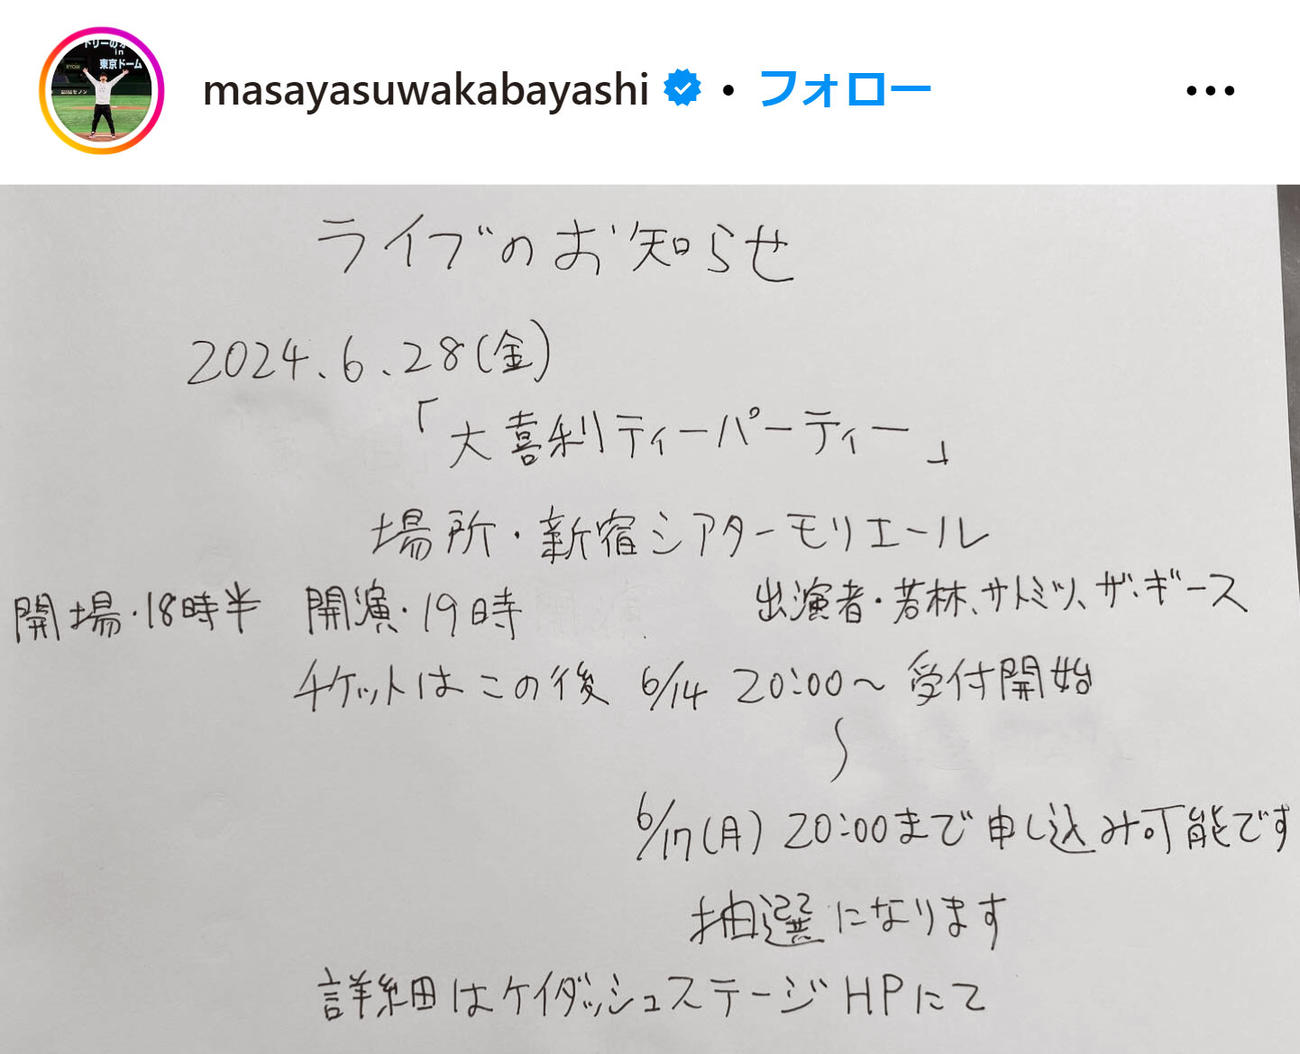 ドリーのオ
in
東京ドーム
masayasuwakabayashi • フォロー
ライブのお知らせ
2024.6.28(金)
「大喜利ティーパーティー」
場所・新宿シアターモリエール
開場・18時半 開演・19時 出演者・若林、サトミツ、ザ・ギース
チケットはこの後 6/14 20:00〜受付開始
〜
6/17(月) 20:00まで申し込み可能です
抽選になります
詳細はケイダッシュステージHPにて